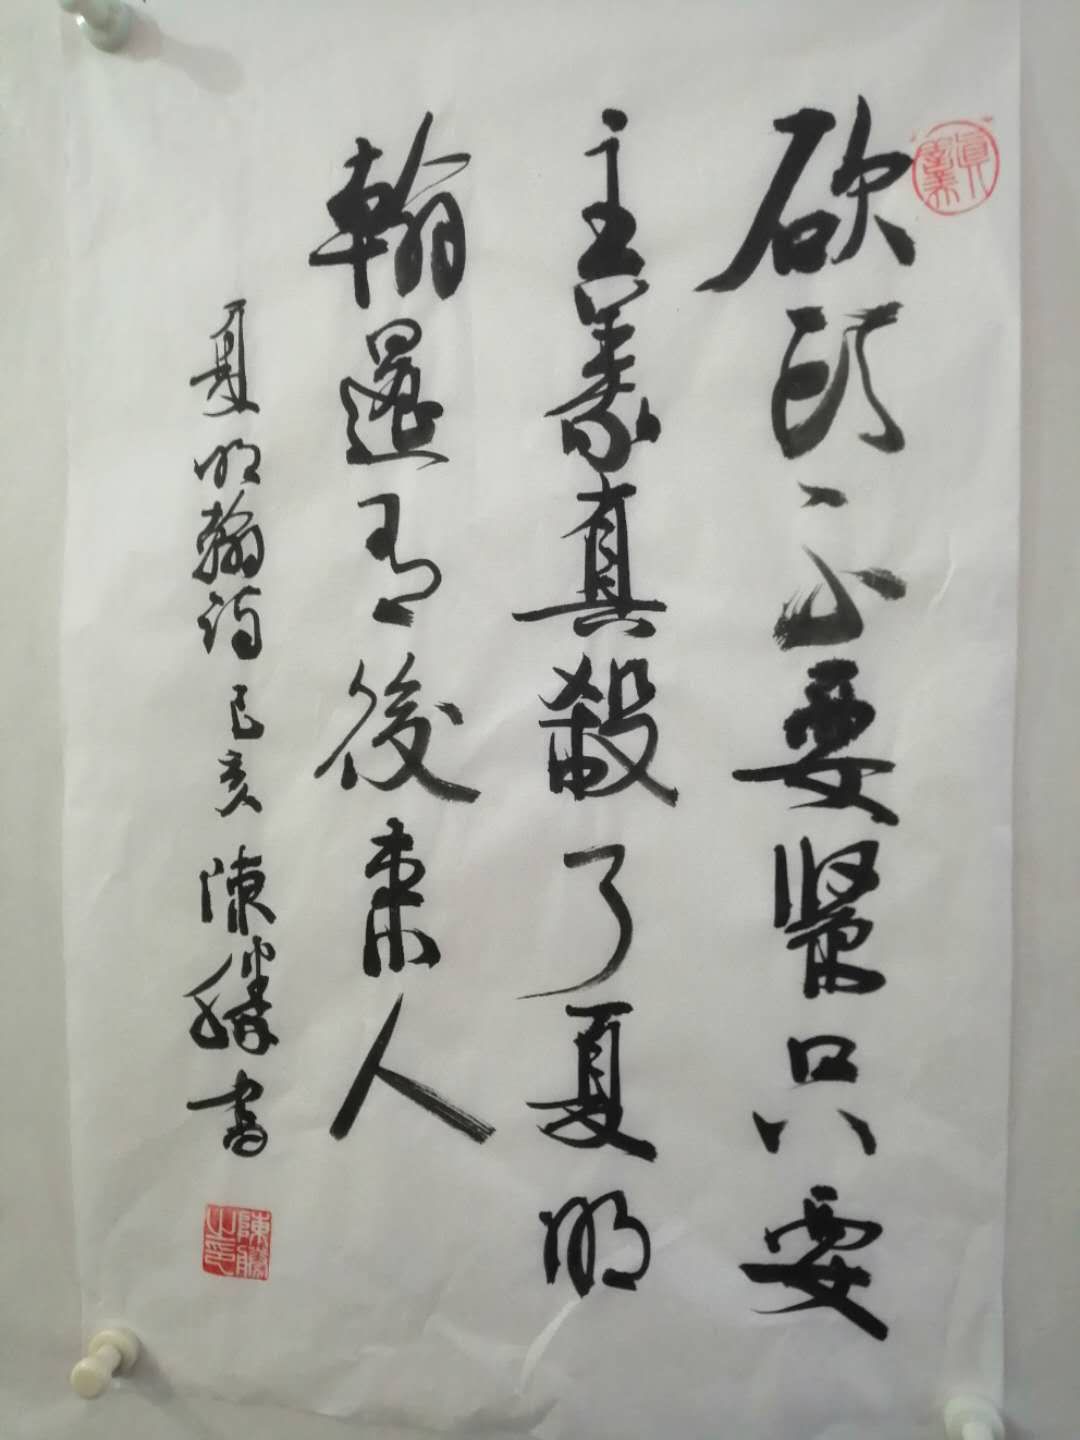 砍頭不要緊只要
主義真殺了夏明
翰還有後來人
夏明翰詩己亥陳勝書
陳勝之印